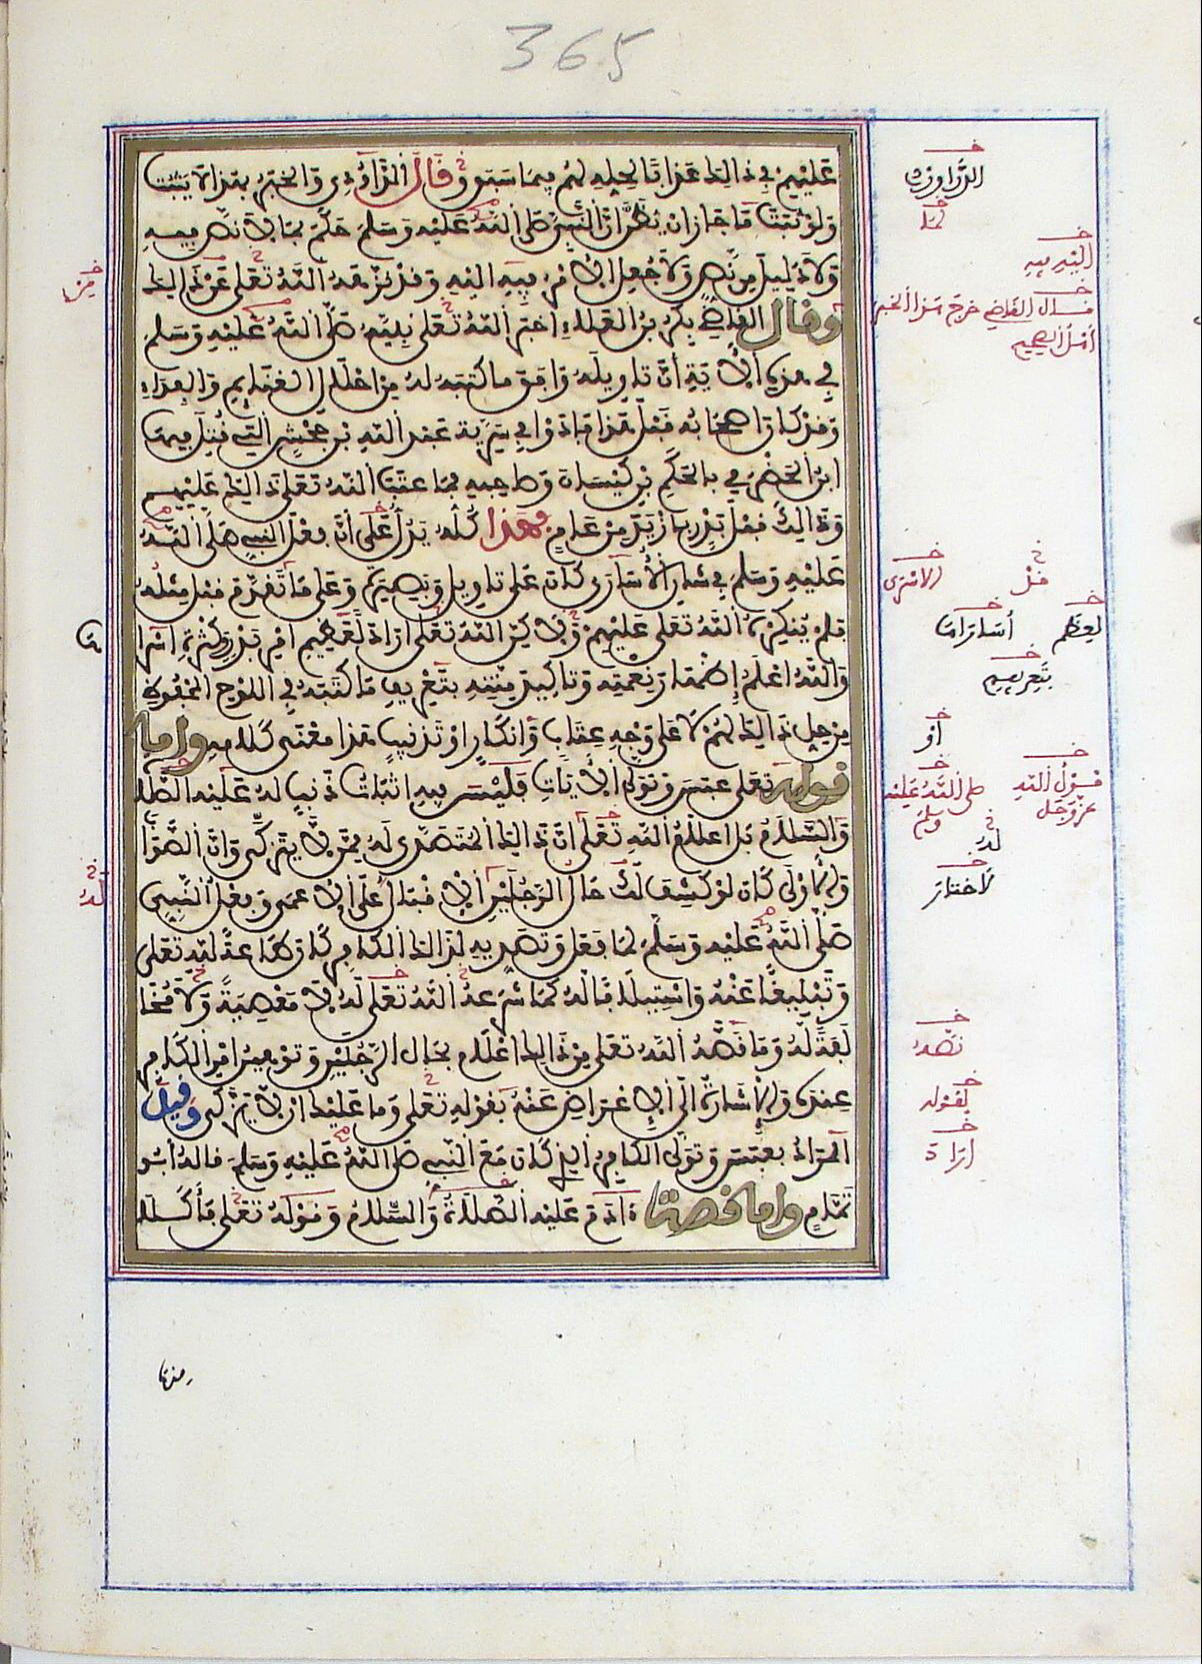 365
عَلَيْهِمْ فِي ذَالِكَ عَذَابًا لِحِلِّهِ لَهُمْ فِيمَا سَبَقَ وَقَالَ الدَّاوُدِي وَالْخَبَرُ بِهَذَا لَا يَثْبُتُ
وَلَوْ ثَبَتَ مَا جَازَ اَنْ يُظَنَّ اَنَّ النَّبِيَّ صَلَّى اللَّهُ عَلَيْهِ وَسَلَّمَ حَكَمَ بِمَا لَا نَصَّ فِيهِ
وَلَا دَلِيلَ مِن نَّصٍّ وَلَا جُعِلَ الْأَمْرُ فِيهِ إِلَيْهِ وَقَدْ نَزَّهَهُ اللَّهُ تَعَلَى عَنْ ذَالِكَ
وقال القاضي بكر بن العلاء اخبر الله تعلى نبيه صلى الله عليه وسلم
في هذه الآية أن تاويله وافق ما كتبه له من احلال الغنايم والفداء
وقد كان اصحابه قبل هذا فادوا في سرية عبد الله بن جحش التي قتل فيها
ابن الحضرمي بالحكم بن كيسان وصاحبه فما عتب الله تعلى ذالك عليهم
وذالك قبل بدر بازيد من عام وهذا كله يدل على أن فعل النبي صلى الله
عليه وسلم في شان الأسارى كان على تاويل وبصيرة وعلى ما تقدم قبل مثله
فلم ينكره الله تعلى عليهم ولاكن الله تعلى اراد لعظيم امر بدر وكثرة اسرا
والله اعلم إظهار نعمته وتاكيد منته بتعريف ما كتبه في اللوح المحفوظ
من حل ذالك لهم لا على وجه عتاب وانكار او تذنيب هذا معنى كلامه واما
قوله تعلى عبس وتولى الآيات فليس فيه اثبات ذنب له عليه الصلا
والسلام بل اعلام الله تعلى ان ذالك المتصدى له ممن لا يتزكى وان الصوا
والأولى كان لو كشف لك حال الرجلين الإقبال على الاعمى وفعل النبي
صلى الله عليه وسلم لما فعل وتصديه لذاك الكافر كان طاعة لله تعلى
وتبليغا عنه واستيلافا له كما شرعه الله تعلى له لا معصية ولا مخا
لفة له وما قصه الله تعلى من ذالك اعلام بحال الرجلين وتوهين امر الكافر
عنده والإشارة الى الإعراض عنه بقوله تعلى وما عليك ان لا يزكى وقيل
المراد بعبس وتولى الكافر الذي كان مع النبي صلى الله عليه وسلم قاله أبو
تمام واما قصة ءادم عليه الصلاة والسلام وقوله تعلى فأكلا
منها
لما
اليه فيه
قال القاضي خرج هذا الخبر
أهل الصحيح
الاسرى
قبل
لعظم
بتعريفهم
أو
قول الله
عز وجل
صلى الله عليه
وسلم
له
لاختار
قصه
لقوله
اراد
له